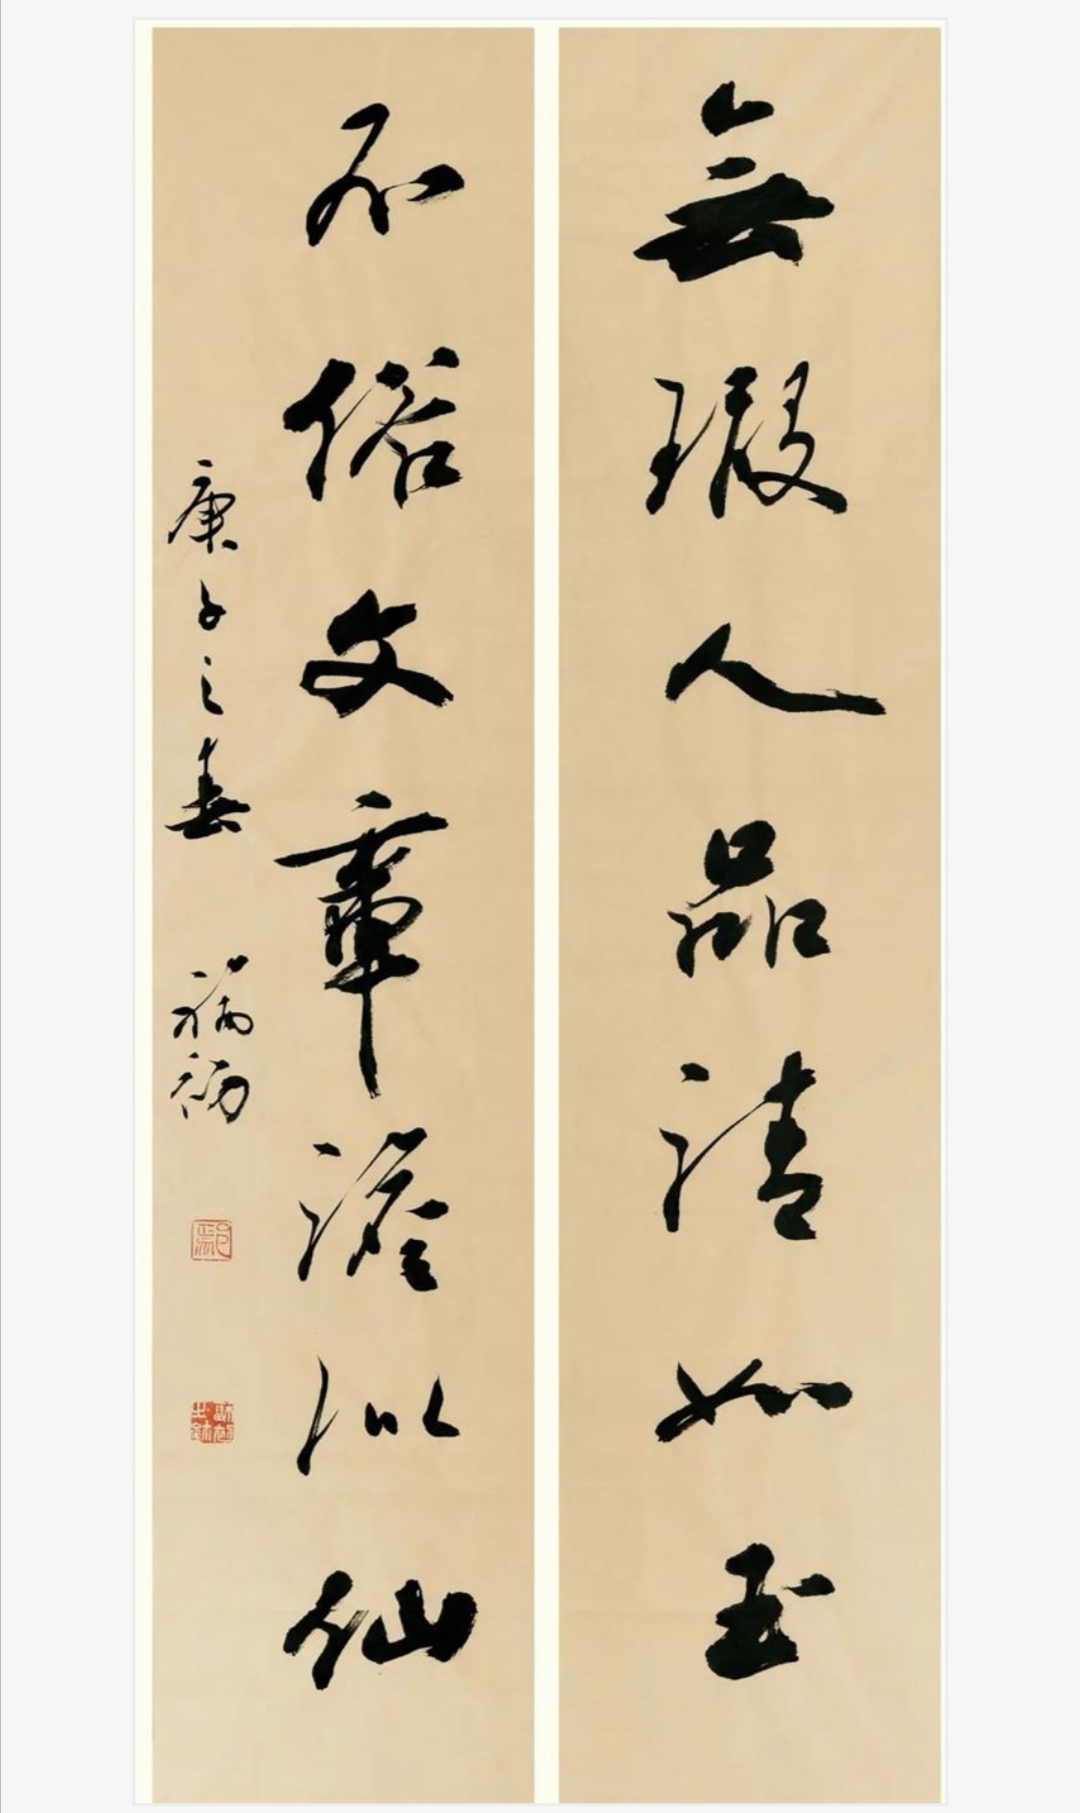 無瑕人品清如玉
不俗文章澹似仙
庚子之春